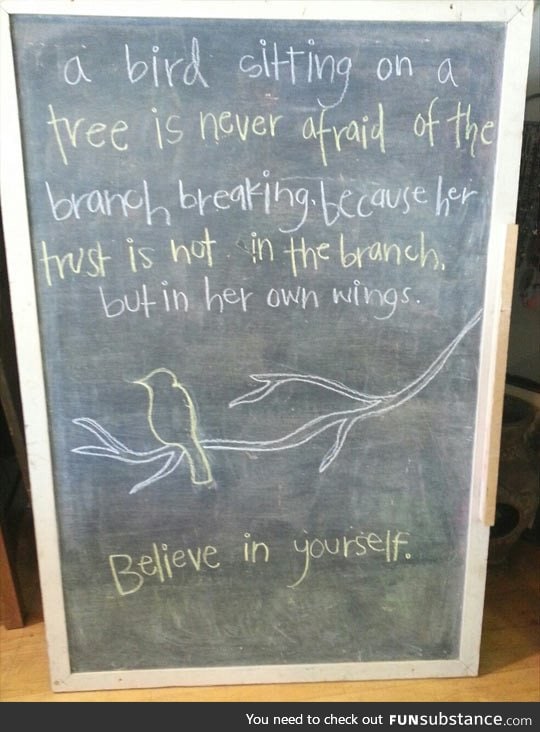 a bird sitting on a
tree is never afraid of the
branch breaking, because her
trust is not in the branch,
but in her own wings.
Believe in yourself.
You need to check out FUNsubstance.com